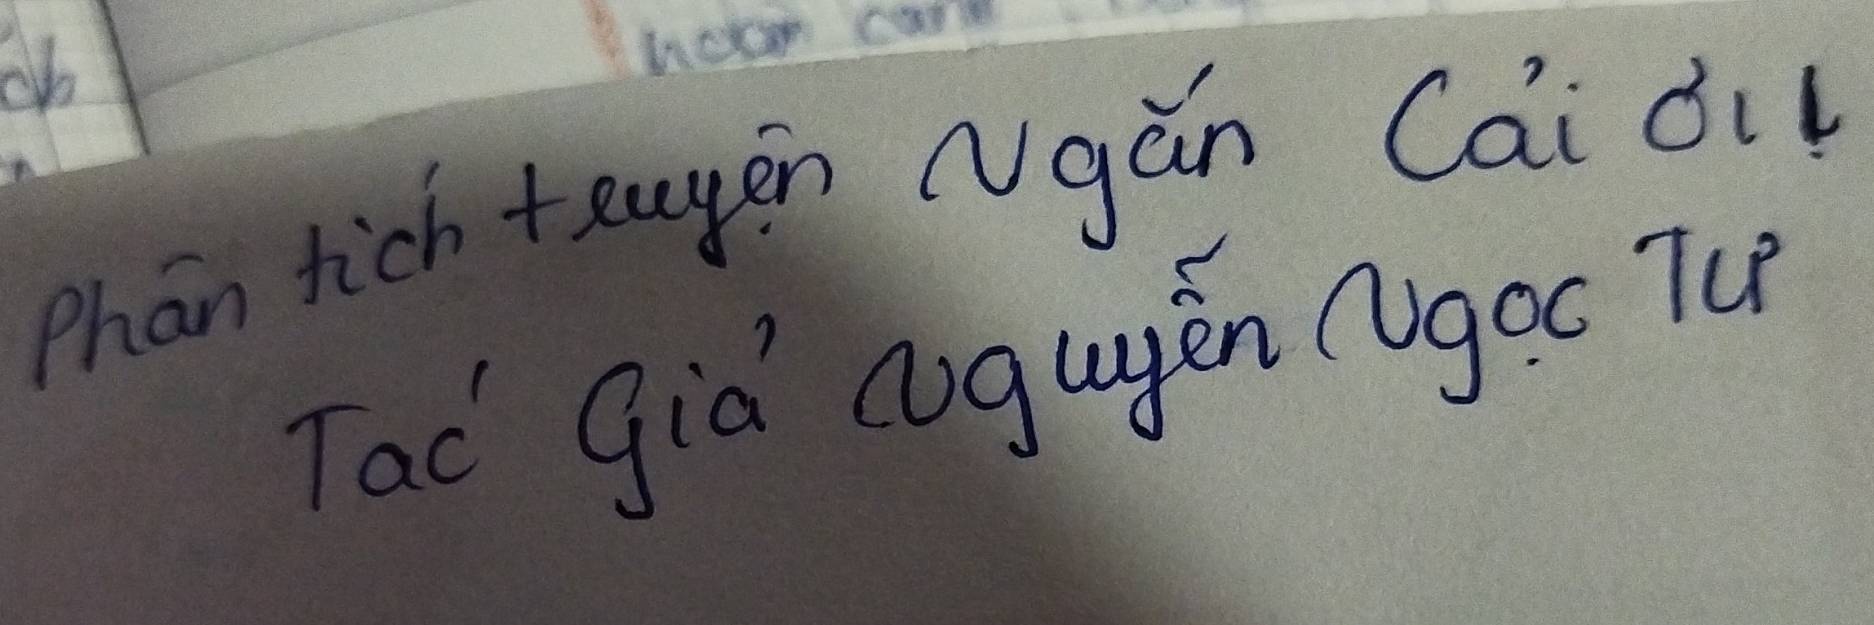 hoàn cảnh
Phân tích truyện Ngắn Cải ơi!
Tác Giả Nguyễn Ngọc Tư